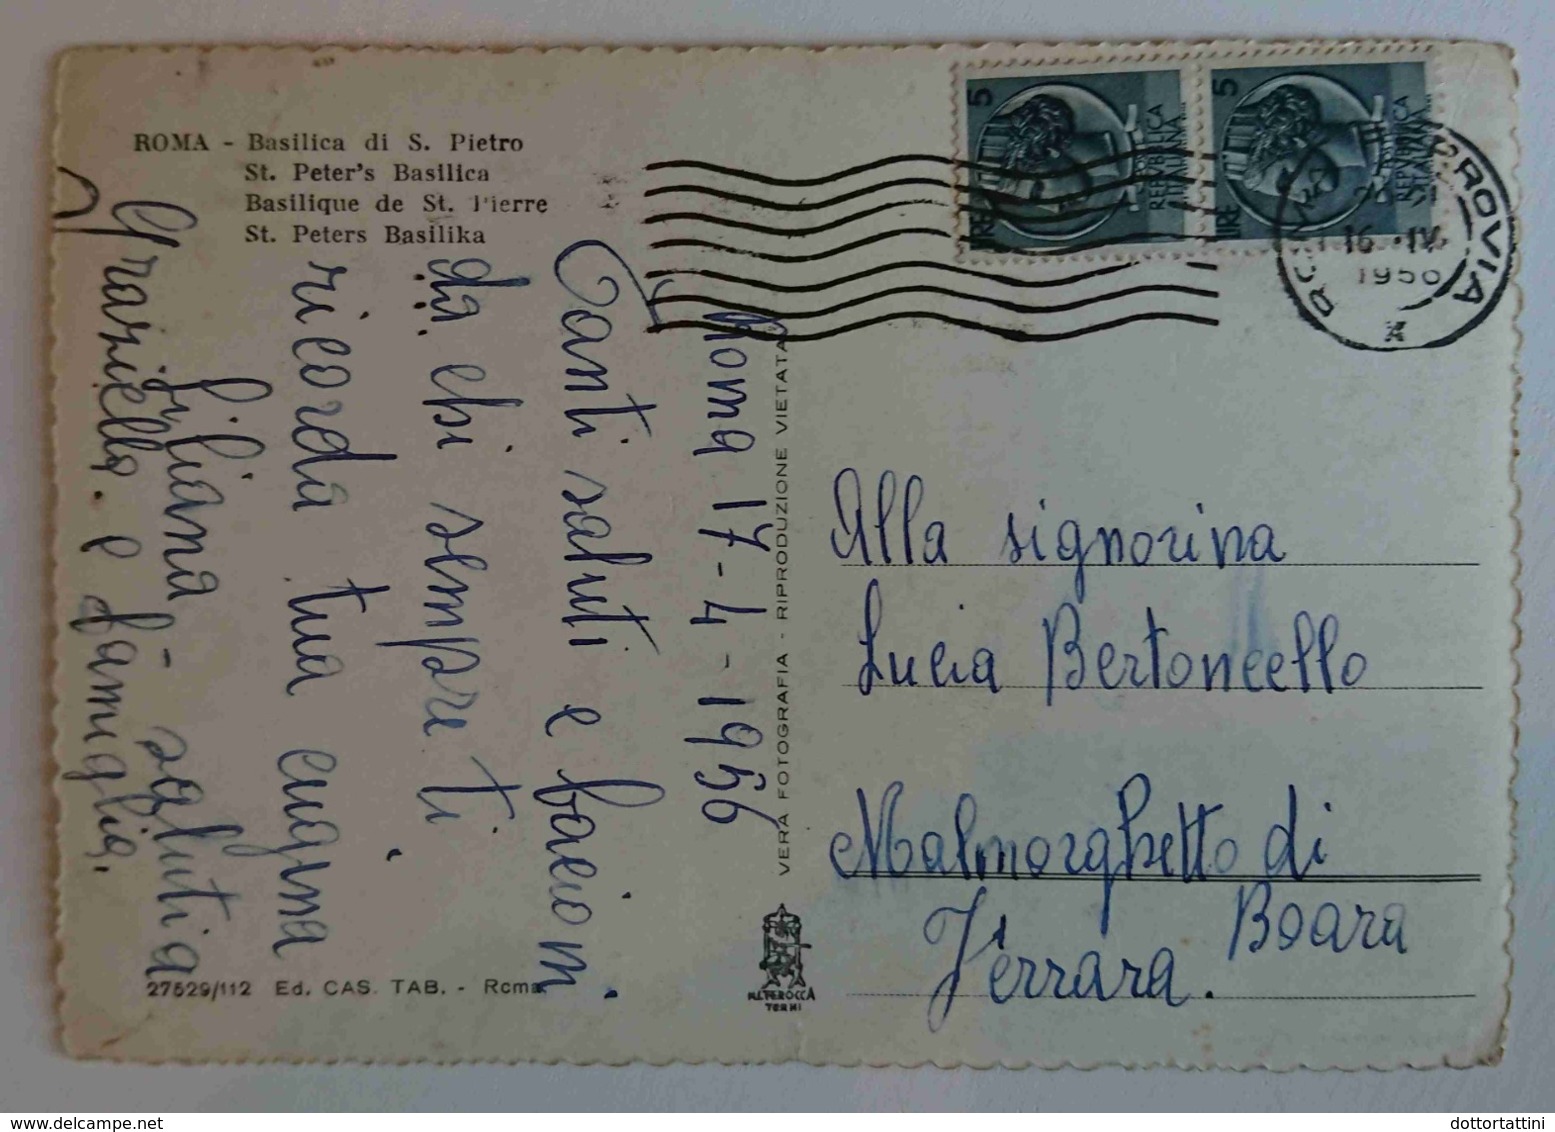 ROMA - Basilica di S. Pietro
St. Peter's Basilica
Basilique de St. Pierre
St. Peters Basilika
Roma 17-4-1956
Tanti saluti e bacioni
da chi sempre ti
ricorda tua cugina
Giliana - saluti a
Graziella. e famiglia.
27529/112 Ed. CAS. TAB. - Roma
VERA FOTOGRAFIA - RIPRODUZIONE VIETATA
ALTEROCCA
TERNI
5
LIRE
REPVBBLICA
ITALIANA
5
LIRE
REPVBBLICA
ITALIANA
ROMA FERROVIA
16 IV
1956
Alla signorina
Lucia Bertoncello
Malmorghetto di
Boara
Ferrara.
dottortattini